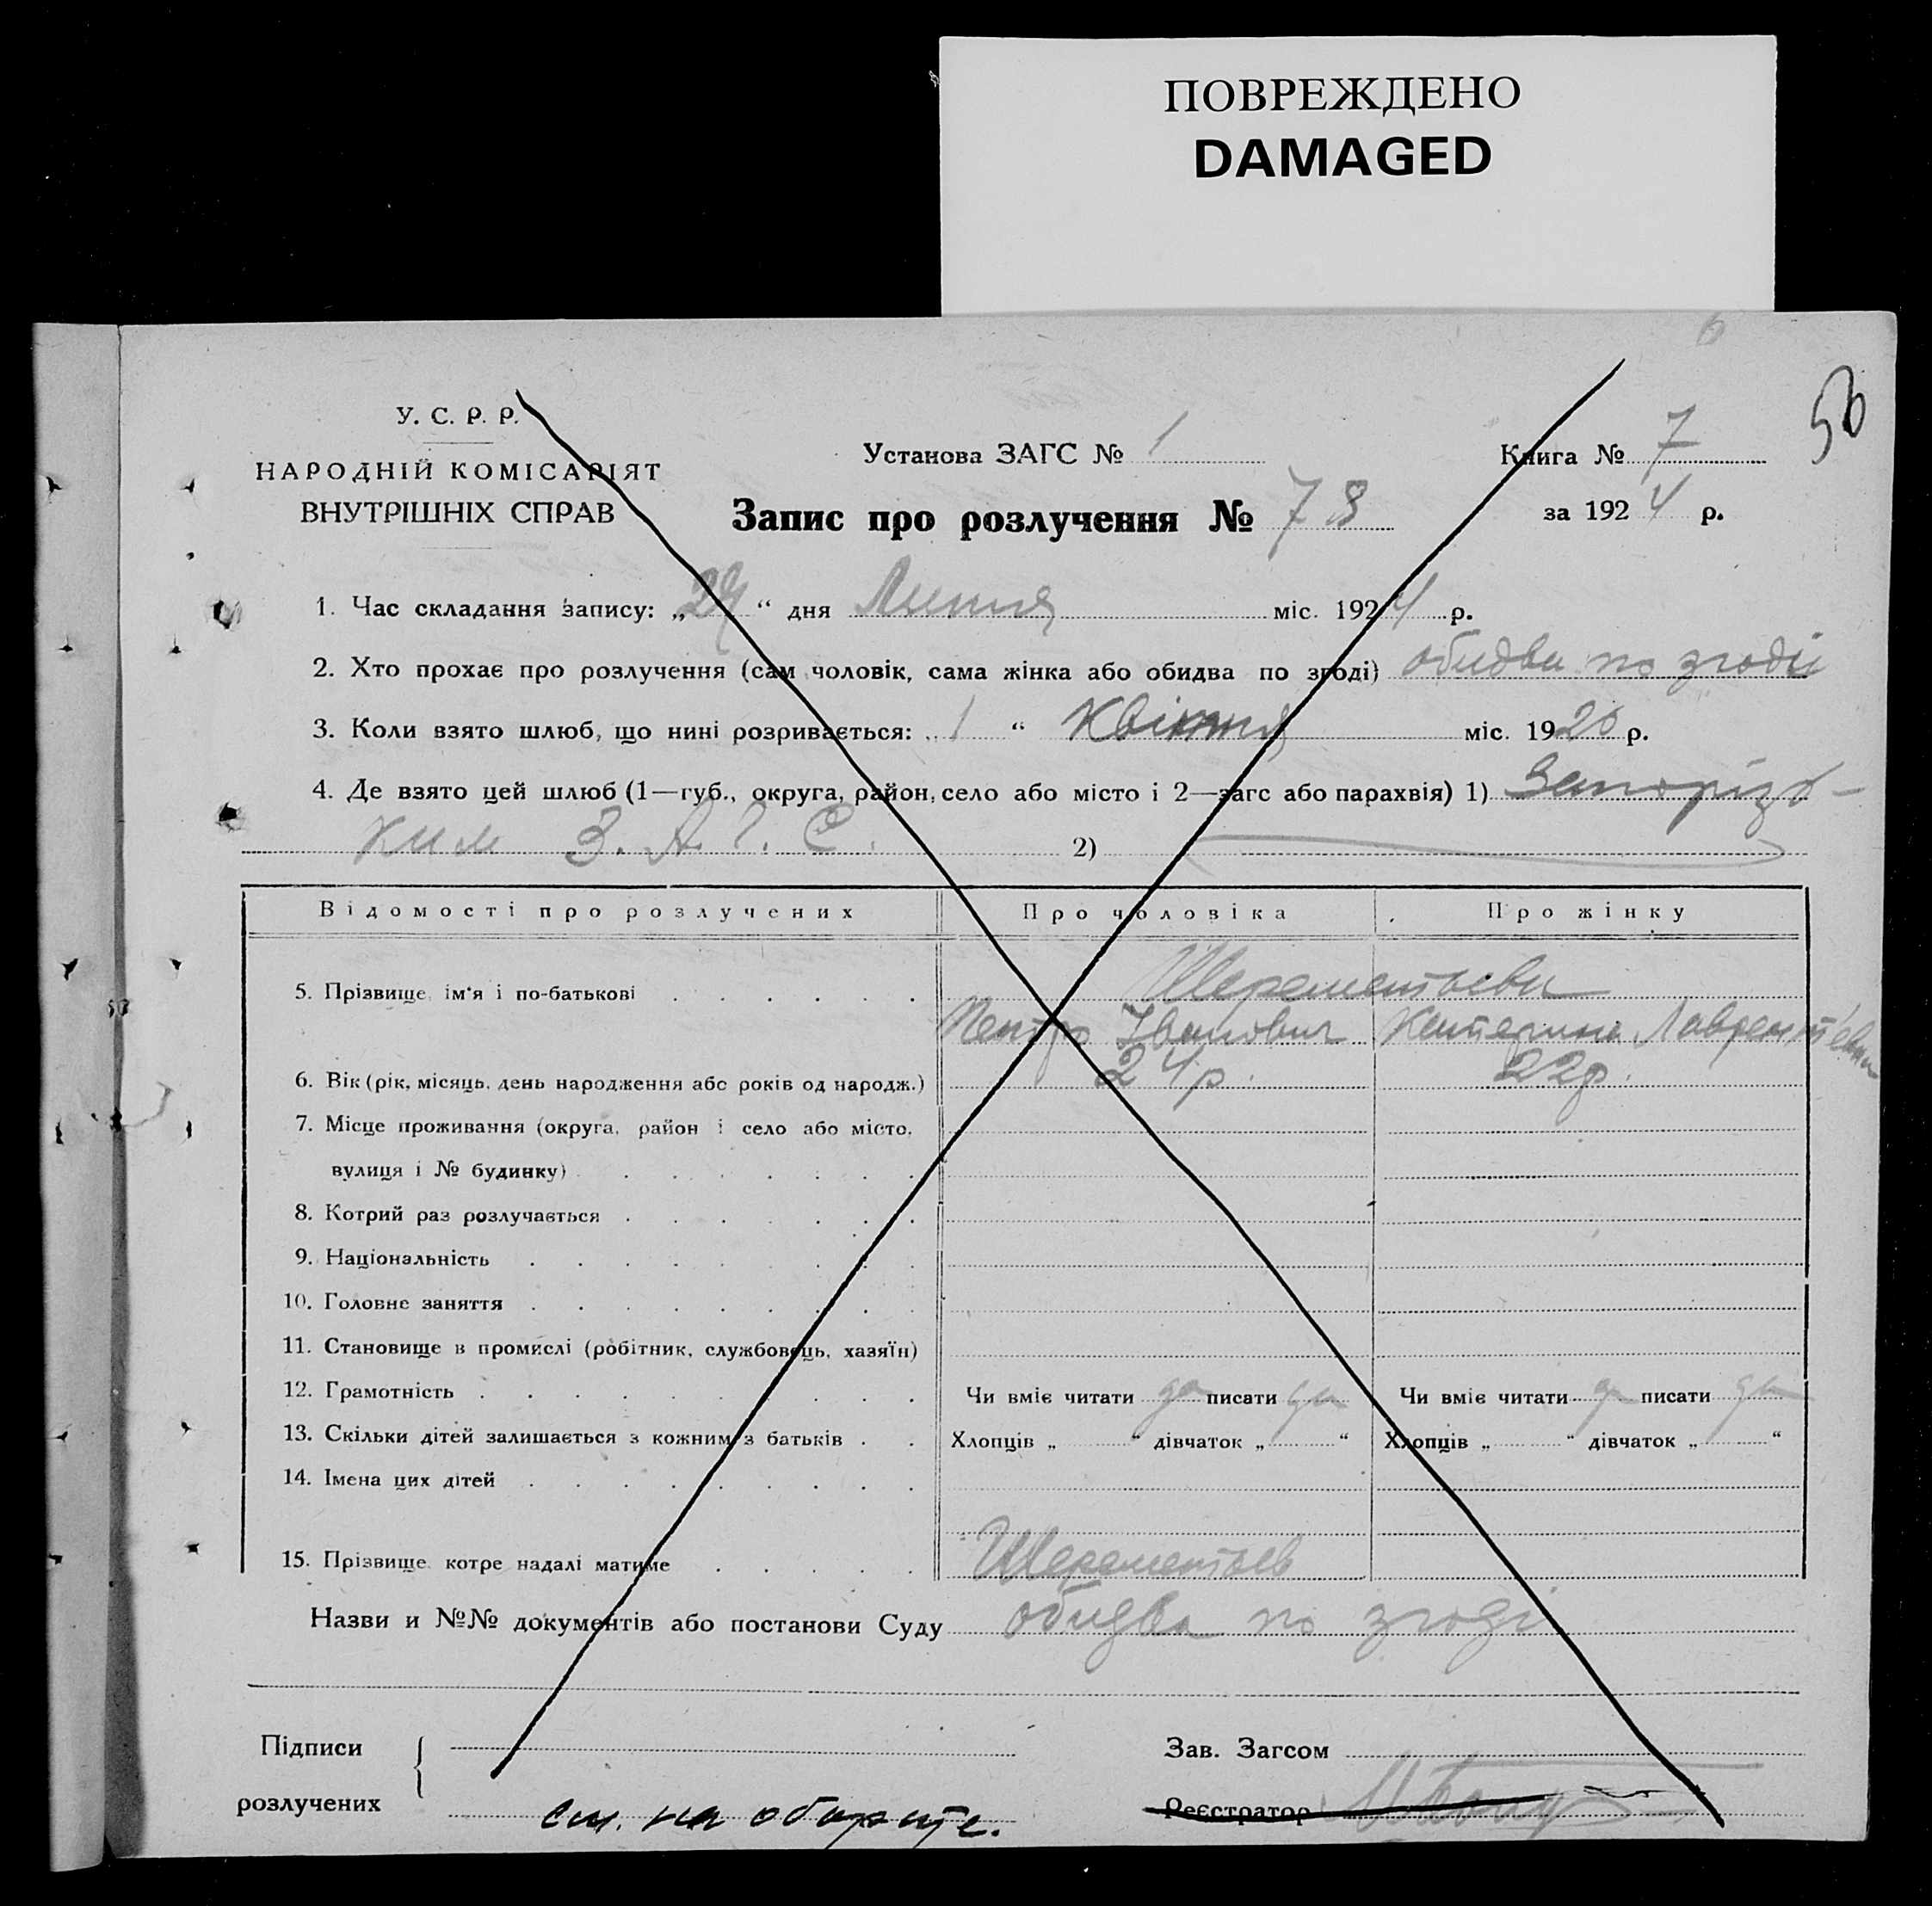 ПОВРЕЖДЕНО
DAMAGED
6
50
У. С. Р. Р.
НАРОДНІЙ КОМІСАРІЯТ
ВНУТРІШНІХ СПРАВ
Установа ЗАГС № 1
Книга № 7
Запис про розлучення № 78
за 1924 р.
1. Час складання запису: „29“ дня Липня міс. 1924 р.
2. Хто прохає про розлучення (сам чоловік, сама жінка або обидва по згоді) обидва по згоді
3. Коли взято шлюб, що нині розривається: 1 “ Квітня міс. 1920 р.
4. Де взято цей шлюб (1—губ., округа, район, село або місто і 2—загс або парахвія) 1) Запорізь-
ким З. А. Г. С. 2)
Відомості про розлучених Про чоловіка Про жінку
Шереметьєви
5. Прізвище, ім'я і по-батькові
Петро Іванович Катерина Лаврентієвна
6. Вік (рік, місяць, день народження або років од народж.) 24 р. 22 р.
7. Місце проживання (округа, район і село або місто,
вулиця і № будинку)
8. Котрий раз розлучається
9. Національність
10. Головне заняття
11. Становище в промислі (робітник, службовець, хазяїн)
12. Грамотність Чи вміє читати да писати да Чи вміє читати да писати да
13. Скільки дітей залишається з кожним з батьків Хлопців „ “ дівчаток „ “ Хлопців „ “ дівчаток „ “
14. Імена цих дітей
15. Прізвище, котре надалі матиме Шереметьєв
Назви и №№ документів або постанови Суду обидва по згоді
Підписи
розлучених
Зав. Загсом
Реєстратор
см. на обороте.